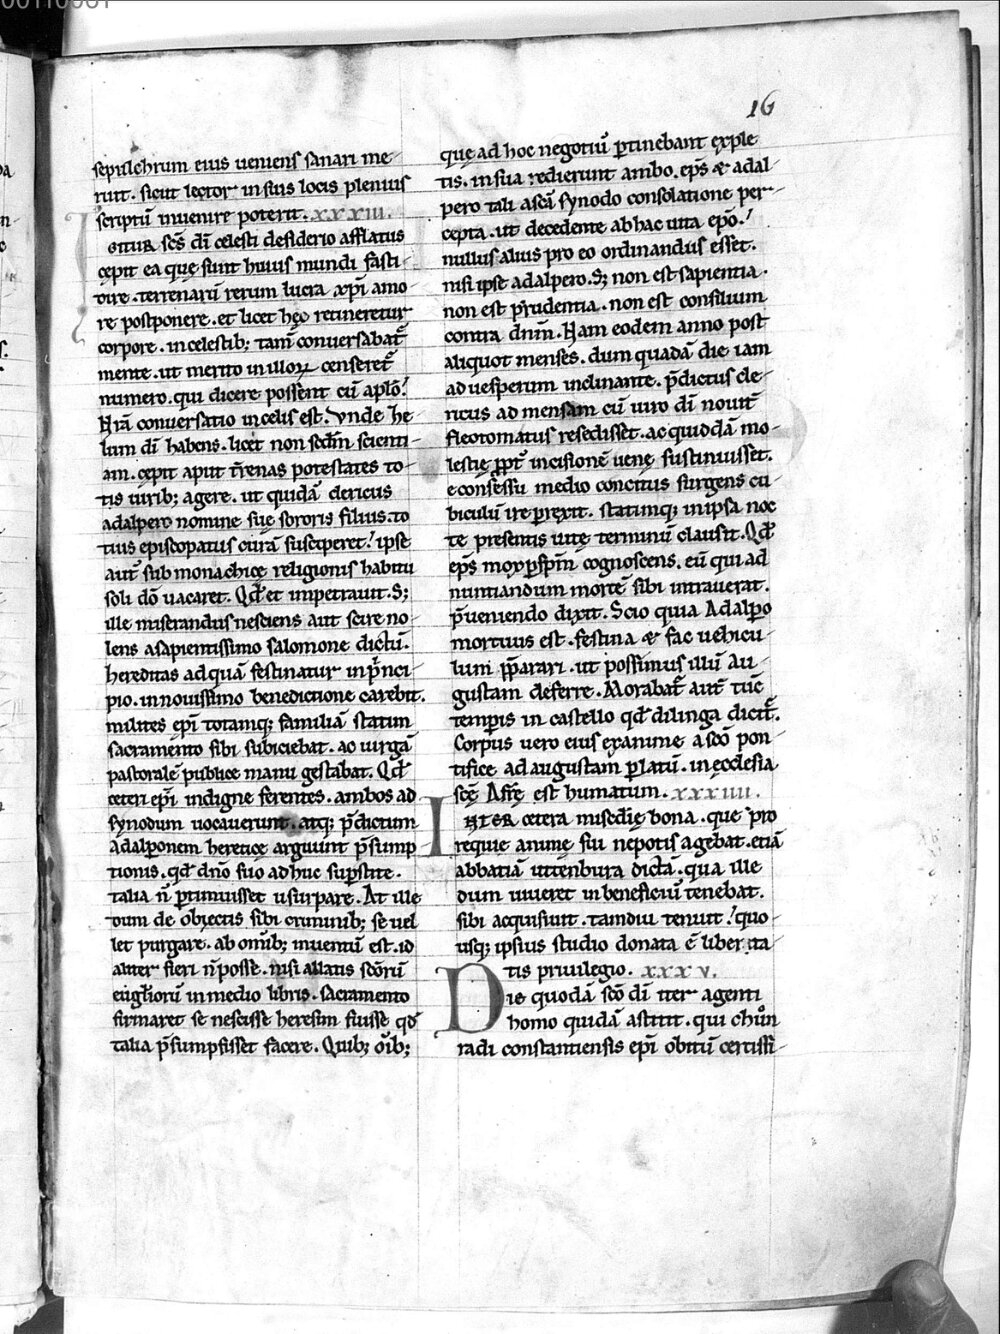 16
sepulchrum eius ueniens sanari me-
ruit. sicut lector in suis locis plenius
scriptū inuenire poterit. xxxiii.
GITUR sc̄s dī celesti desiderio afflatus
cępit ea quę sunt huius mundi fasti-
dire. terrenarū rerum lucra xp̄i amo-
re postponere. et licet hęc retineretur
corpore. in celestib; tam̄ conuersabat᷑
mente. ut merito in illoꝝ censeret᷑
numero. qui dicere possent cū apl̄o.
Nr̄a conuersatio in celis est. Vnde he-
lum dī habens. licet non sedm̄ scienti-
am. cepit aput tr̄enas potestates to-
tis uirib; agere. ut quidā clericus
adalpero nomine suę sororis filius. to-
tius episcopatus curā susciperet. ipse
aut̄ sub monachicę religionis habitu
soli dō uacaret. Qd̄ et impetrauit. S;
ille miserandus nesciens aut scire no-
lens a sapientissimo salomone dictū.
hereditas ad quā festinatur in p̄nci-
pio. in nouissimo benedictione carebit.
milites ep̄i totamq; familiā statim
sacramento sibi subiciebat. ac uirgā
pastoralē publice manu gestabat. Qd̄
ceteri ep̄i indigne ferentes. ambos ad
synodum uocauerunt. atq; p̄dictum
Adalꝑonem heretice arguunt p̄sump-
tionis. qd̄ dn̄o suo adhuc suꝑstite.
talia n̄ ꝑtimuisset usurpare. At ille
dum de obiectis sibi criminib; se uel-
let purgare. ab om̄ib; inuentū est. id
aliter fieri n̄ posse. nisi allatis sc̄orū
eug̅liorū in medio libris. sacramento
firmaret se nescisse heresim fuisse qd̄
talia p̄sumpsisset facere. Quib; om̄ib;
quę ad hoc negotiū ꝑtinebant exple-
tis. in sua redierunt ambo. ep̄s & adal-
pero tali a sc̄a synodo consolatione per-
cepta. ut decedente ab hac uita ep̄o.
nullus alius pro eo ordinandus esset.
nisi ipse adalpero. S; non est sapientia.
non est prudentia. non est consilium
contra dnm̄. Nam eodem anno post
aliquot menses. dum quadā die iam
ad uesperum inclinante. p̄dictus cle-
ricus ad mensam cū uiro dī nouit᷑
fleotomatus resedisset. ac quiddā mo-
lestię ꝓpt᷑ incisionē uenę sustinuisset.
e consessu medio concitus surgens cu-
biculū ire ꝑrexit. statimq; in ipsa noc-
te presentis uitę terminū clausit. Qd̄
ep̄s mox ꝑ sp̄m cognoscens. eū qui ad
nuntiandum mortē sibi intrauerat.
p̄ueniendo dixit. Scio quia Adalꝑo
mortuus est. festina & fac uehicu-
lum p̄parari. ut possimus illū Au-
gustam deferre. Morabat᷑ aut̄ tūc
temꝑis in castello qd̄ dilinga dicit᷑.
Corpus uero eius exanime a sc̄o pon-
tifice ad augustam ꝑlatū. in ecclesia
sc̄ę Afrę est humatum. xxxiiii.
INTER cetera misc̄dię bona. que pro
requie animę sui nepotis agebat. etiā
abbatiā uttenbura dictā. qua ille
dum uiueret in beneficiū tenebat.
sibi acquisiuit. tamdiu tenuit. quo-
usq; ipsius studio donata ē liberta-
tis priuilegio. xxxv.
Die quodā sc̄o dī iter agenti
homo quidā astitit. qui chūn-
radi constantiensis ep̄i obitū certissi-